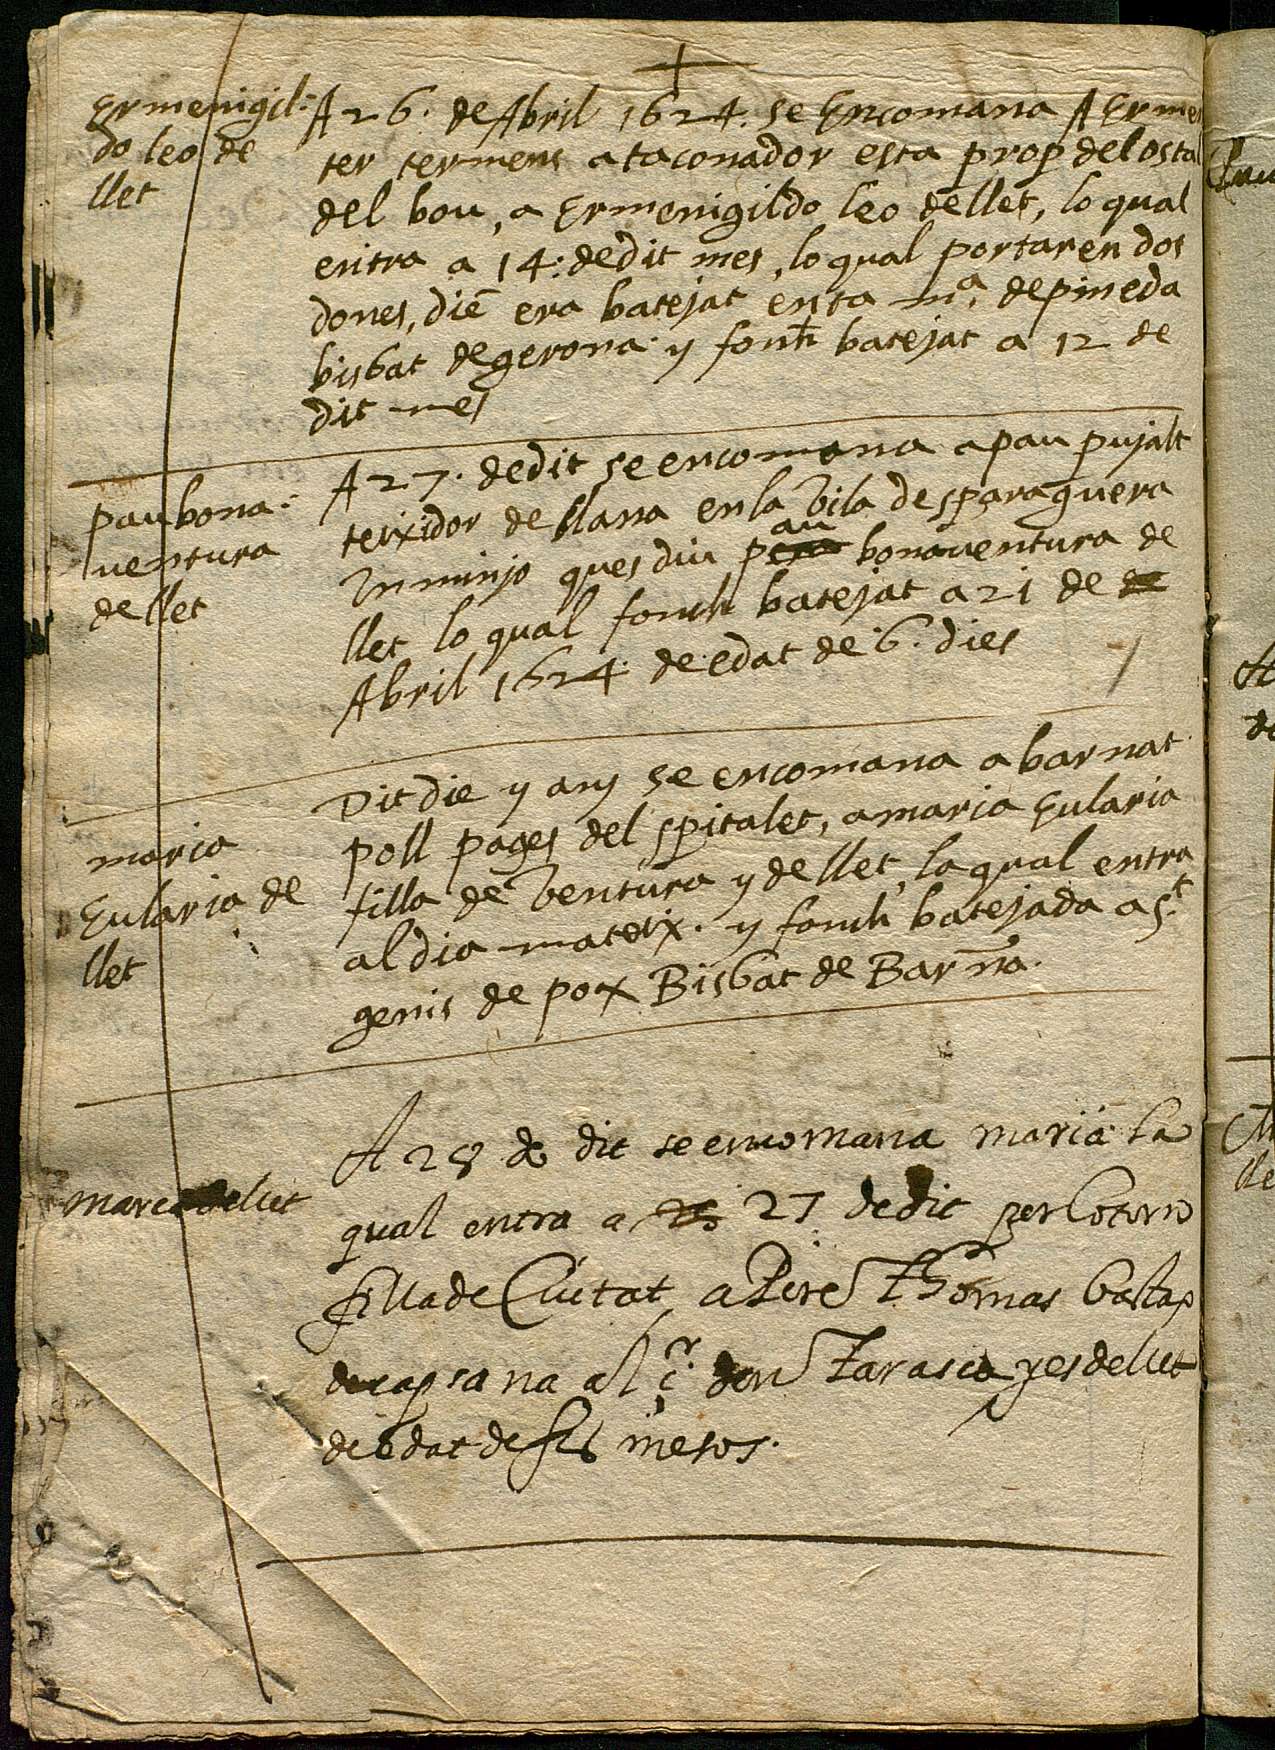 Ermenigil-
do leo de
llet
A 26. de Abril 1624. se Encomana A Erme
ter termens ataconador esta prop del osta
del bou, a Ermenigildo leo dellet, lo qual
entra a 14. dedit mes, lo qual portaren dos
dones, diē era batejat en sta mª. depineda
bisbat degerona. y fonch batejat a 12 de
dit mes
pau bona-
uentura
dellet
A 27. dedit se encomana apau pujalt
teixidor de llana en la Vila desparaguera
Un minjo ques diu pau bonauentura de
llet lo qual fonch batejat a 21 de
Abril 1624. de edat de 6. dies
maria
Eularia de
llet
Dit die y any se encomana abarnat
poll pages del spitalet, amaria Eularia
filla de Ventura y dellet, la qual entra
al dia mateix. y fonch batejada a St.
genis de pox Bisbat de Barña.
A 28 de dit se encomana maria la
qual entra a 27 dedit per lo torn
filla de Ciutat a Pere Thomas bastax
de capsana al cr. den Tarascó yes dellet
de edat de sis mesos.